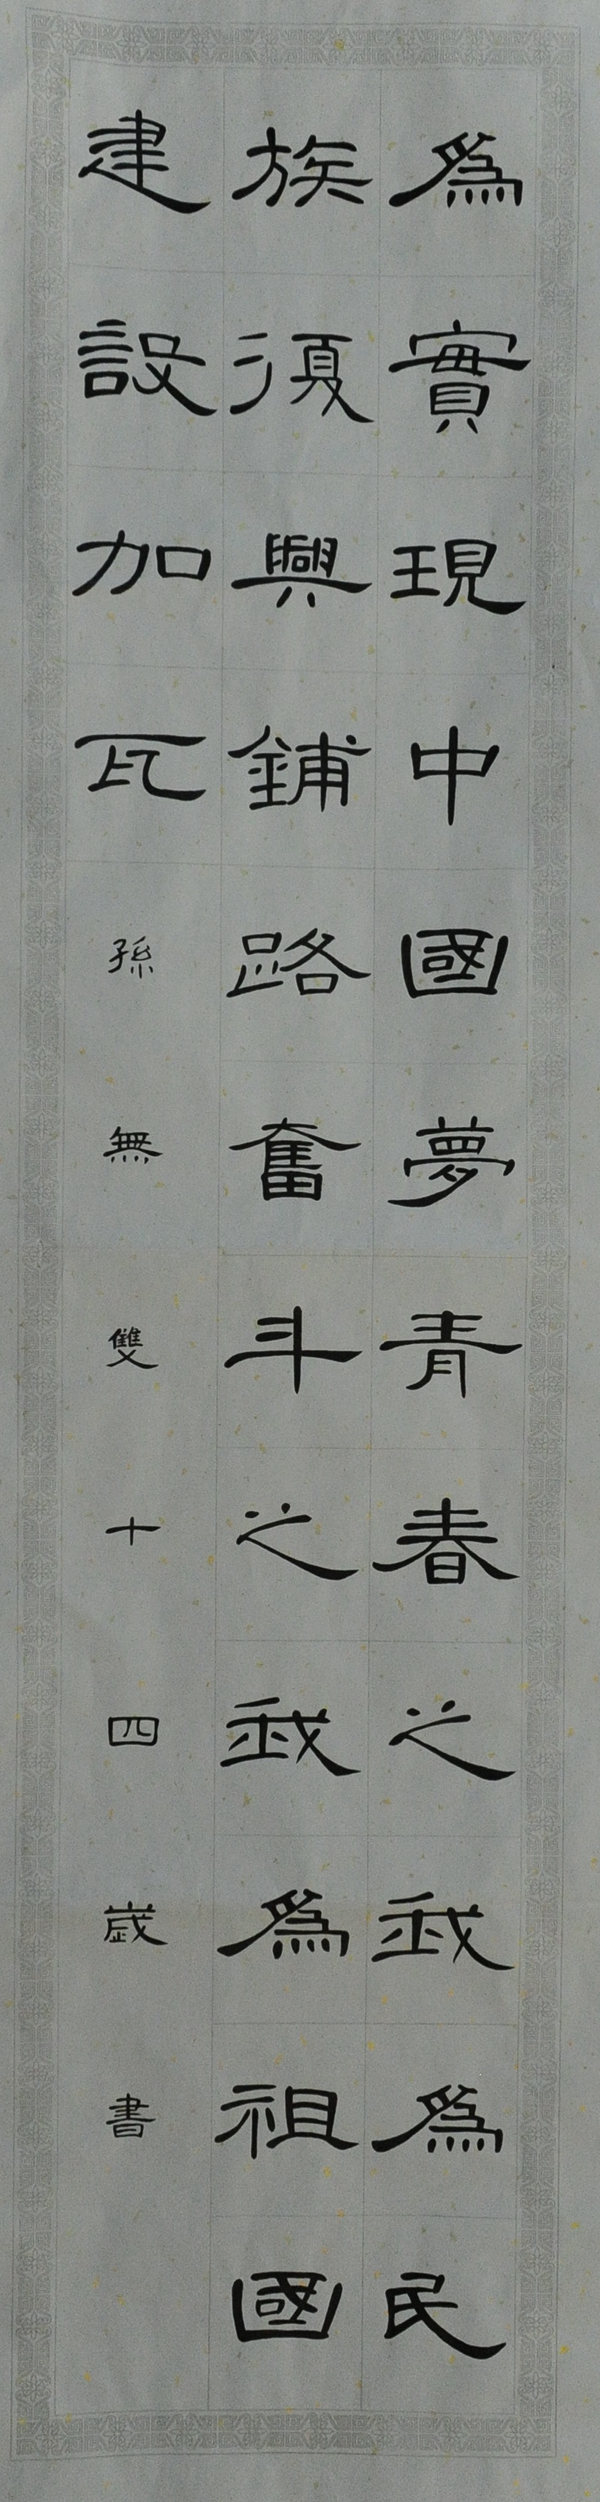 為實現中國夢青春之我為民
族復興鋪路奮斗之我為祖國
建設加瓦孫無雙十四歲書